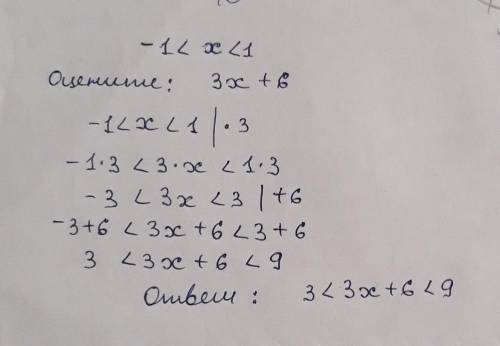 -1 < x < 1
Оцените: 3x + 6
-1 < x < 1 | · 3
-1·3 < 3·x < 1·3
-3 < 3x < 3 | +6
-3+6 < 3x + 6 < 3 + 6
3 < 3x + 6 < 9
Ответ: 3 < 3x + 6 < 9